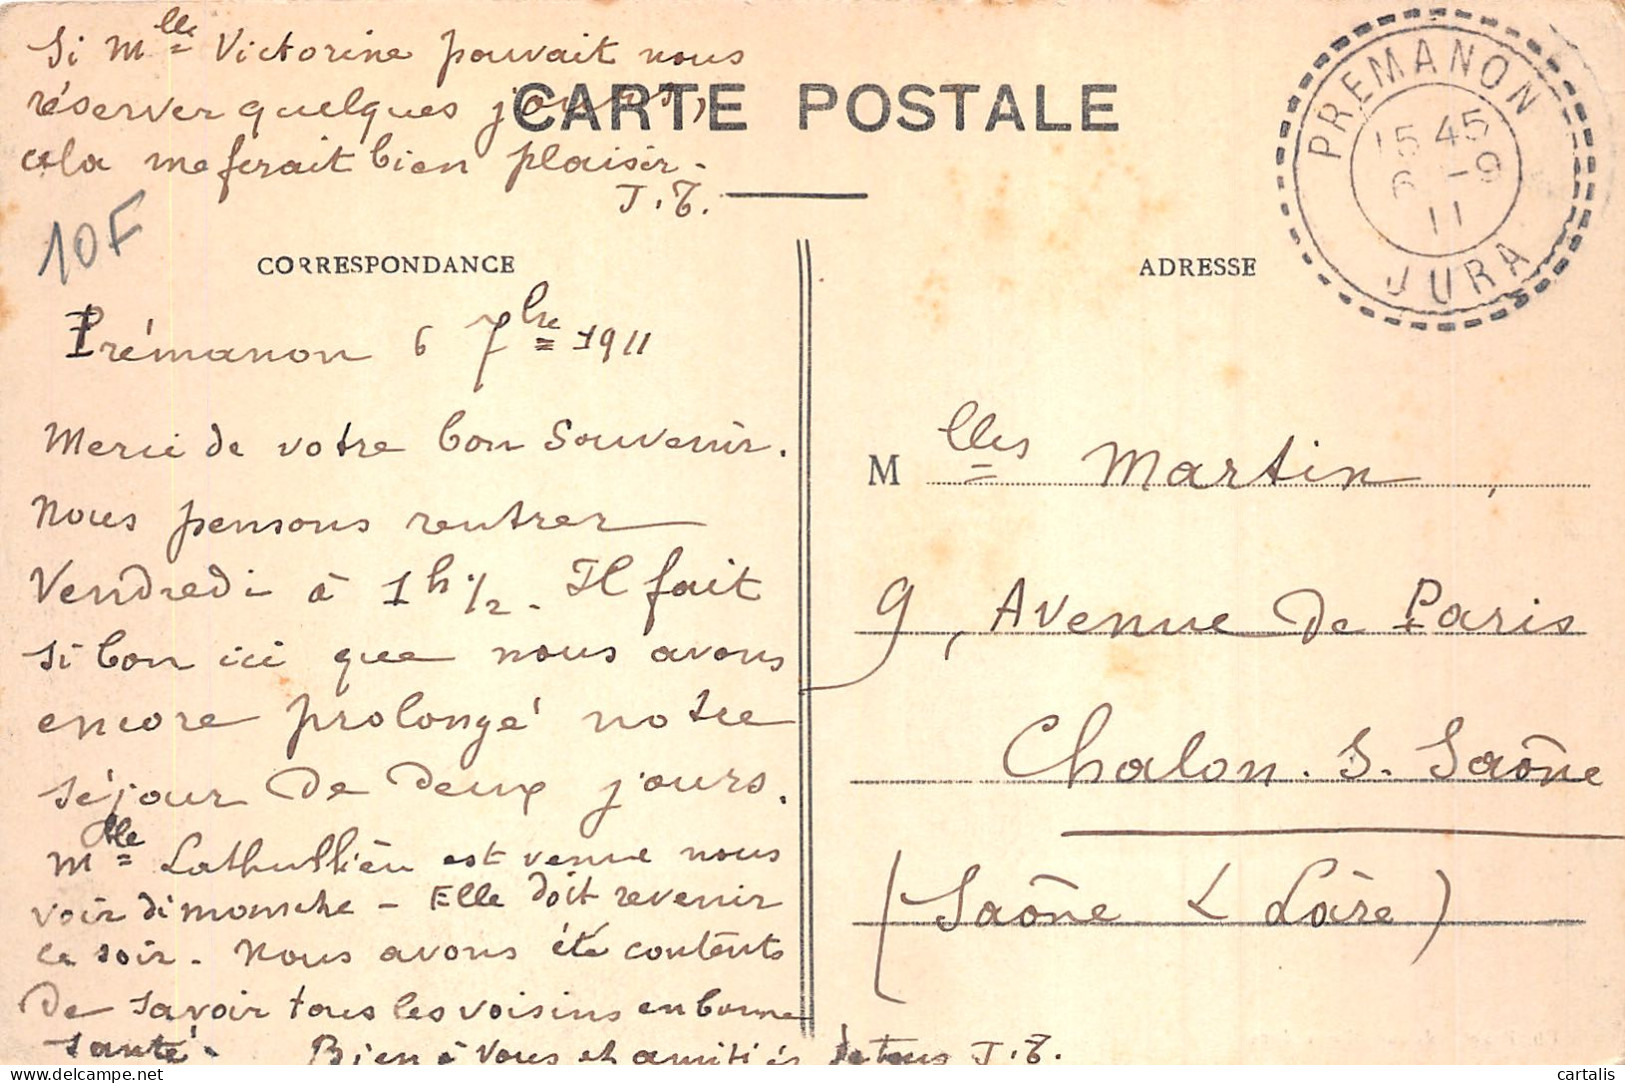 Si Mlle Victorine pouvait nous
réserver quelques jours,
cela me ferait bien plaisir -
J.T.
CARTE POSTALE
10F
PREMANON
15 45
6 -9
11
JURA
CORRESPONDANCE
Prémanon 6 7bre 1911
Merci de votre bon souvenir.
Nous pensons rentrer
Vendredi à 1h 1/2. Il fait
si bon ici que nous avons
encore prolongé notre
séjour de deux jours.
Mlle est venue nous
voir dimanche - Elle doit revenir
ce soir. Nous avons été contents
de savoir tous les voisins en bonne
santé. Bien à vous et amitiés de tous J.T.
ADRESSE
Mlles Martin,
9, Avenue de Paris
Chalon. S. Saône
(Saône & Loire)
cartalis